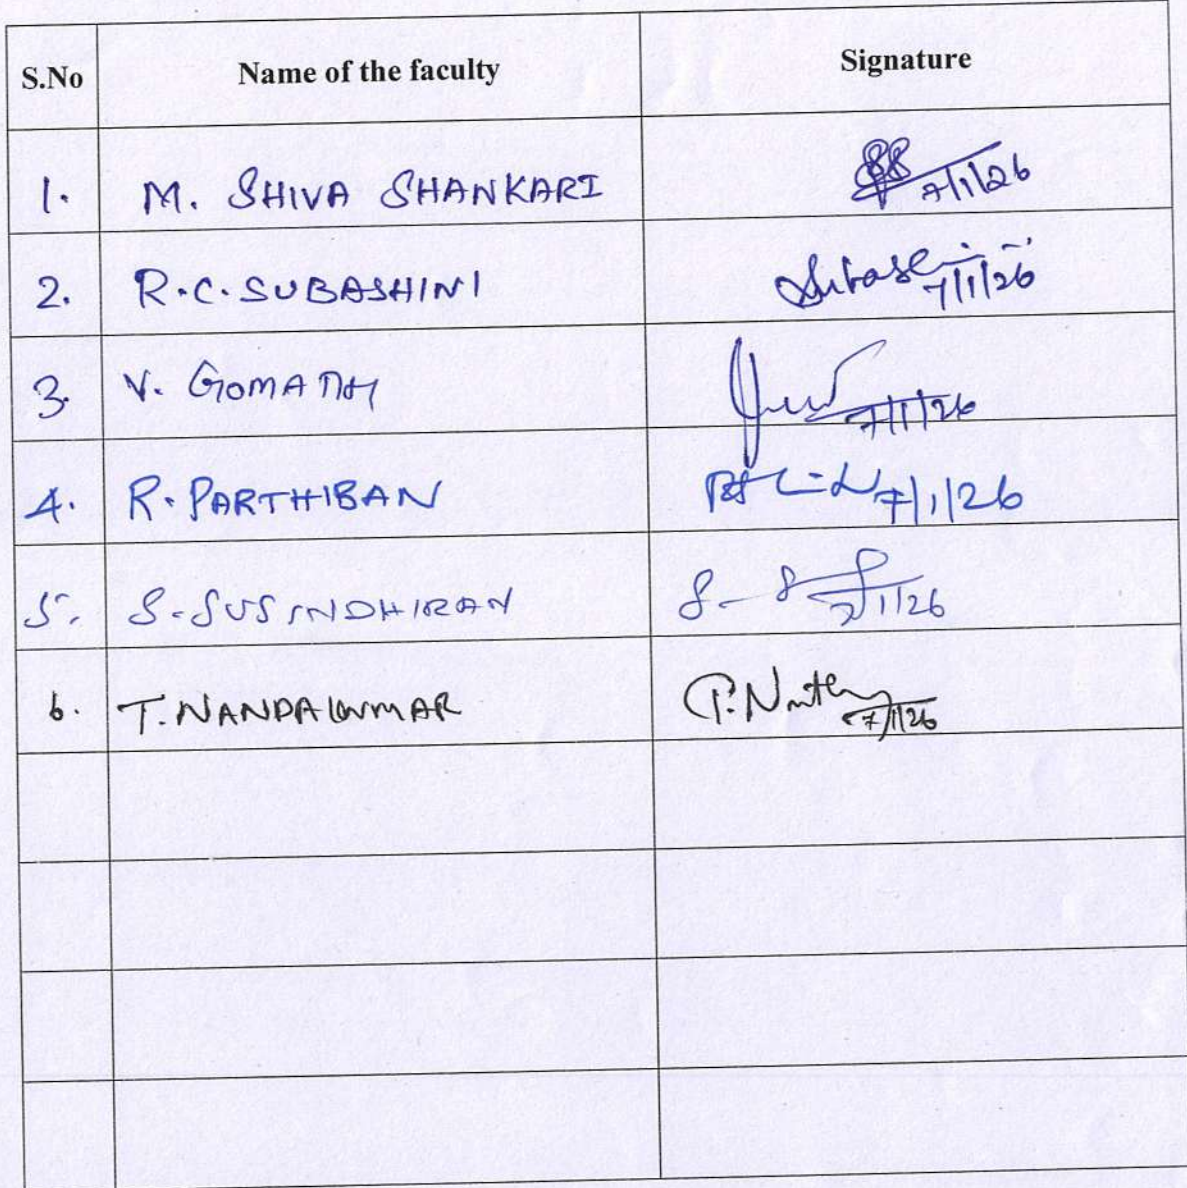 S.No Name of the faculty Signature
1. M. SHIVA SHANKARI 7/1/26
2. R.C. SUBASHINI 7/1/26
3. V. GOMATHY 7/1/26
4. R. PARTHIBAN 7/1/26
5. S. SUSINDHIRAN 7/1/26
6. T. NANDAKUMAR 7/1/26